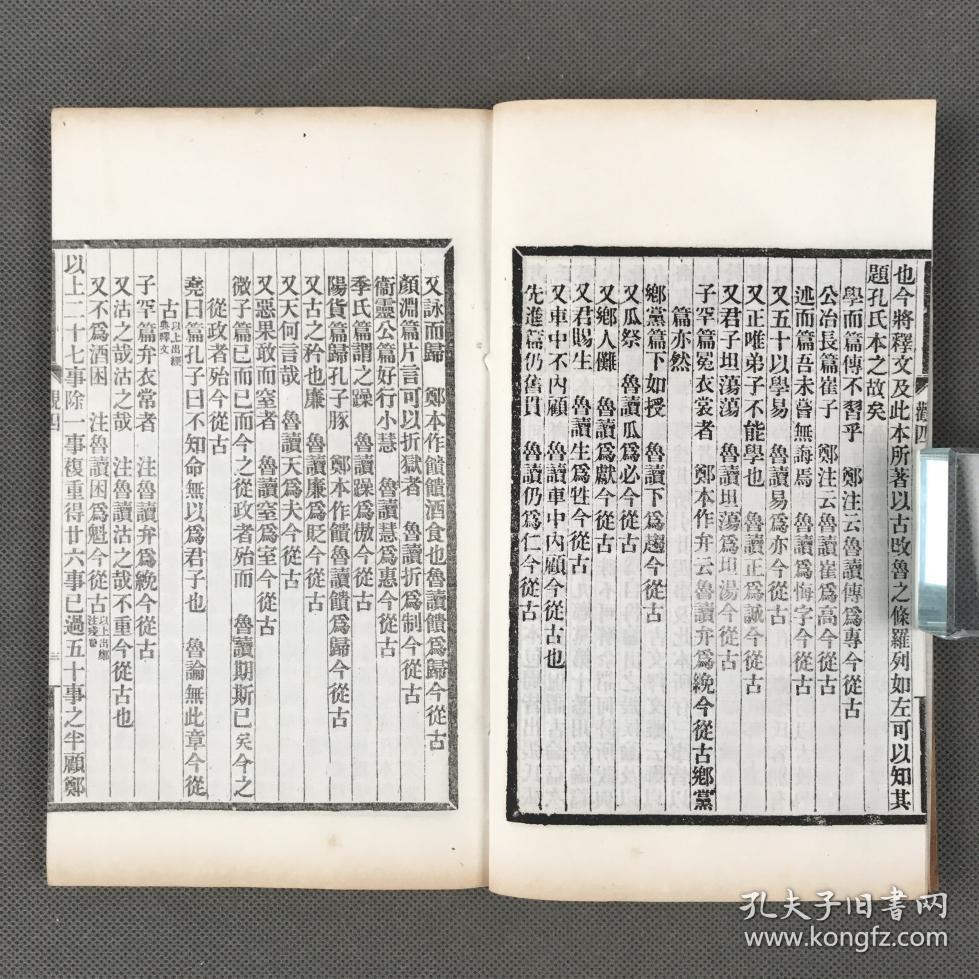 也今將釋文及此本所著以古改魯之條羅列如左可以知其
題孔氏本之故矣
學而篇傳不習乎　鄭注云魯讀傳爲專今從古
公冶長篇崔子　鄭注云魯讀崔爲高今從古
述而篇吾未嘗無誨焉　魯讀爲悔字今從古
又五十以學易　魯讀易爲亦今從古
又正唯弟子不能學也　魯讀正爲誠今從古
又君子坦蕩蕩　魯讀坦蕩爲坦湯今從古
子罕篇冕衣裳者　鄭本作弁云魯讀弁爲絻今從古鄉黨
篇亦然
鄉黨篇下如授　魯讀下爲趨今從古
又瓜祭　魯讀瓜爲必今從古
又鄉人儺　魯讀爲獻今從古
又君賜生　魯讀生爲牲今從古
又車中不內顧　魯讀車中內顧今從古也
先進篇仍舊貫　魯讀仍爲仁今從古
觀四
又詠而歸　鄭本作饋饋酒食也魯讀饋爲歸今從古
顏淵篇片言可以折獄者　魯讀折爲制今從古
衞靈公篇好行小慧　魯讀慧爲惠今從古
季氏篇謂之躁　魯讀躁爲傲今從古
陽貨篇歸孔子豚　鄭本作饋魯讀饋爲歸今從古
又古之矜也廉　魯讀廉爲貶今從古
又天何言哉　魯讀天爲夫今從古
又惡果敢而窒者　魯讀窒爲室今從古
微子篇已而已而今之從政者殆而　魯讀期斯已矣今之
從政者殆今從古
堯曰篇孔子曰不知命無以爲君子也　魯論無此章今從
古以上出經典釋文
子罕篇弁衣常者　注魯讀弁爲絻今從古
又沽之哉沽之哉　注魯讀沽之哉不重今從古也
又不爲酒困　注魯讀困爲魁今從古以上出鄭注殘卷
以上二十七事除一事複重得廿六事已過五十事之半顧鄭
觀四
三
孔夫子旧书网
www.kongfz.com